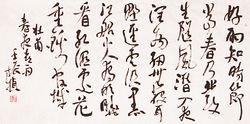 好雨知時節
當春乃發
生隨風潛入夜
潤物細無聲
野徑雲俱黑
江船火獨明曉
看紅濕處花
重錦官城
杜甫
春夜喜雨